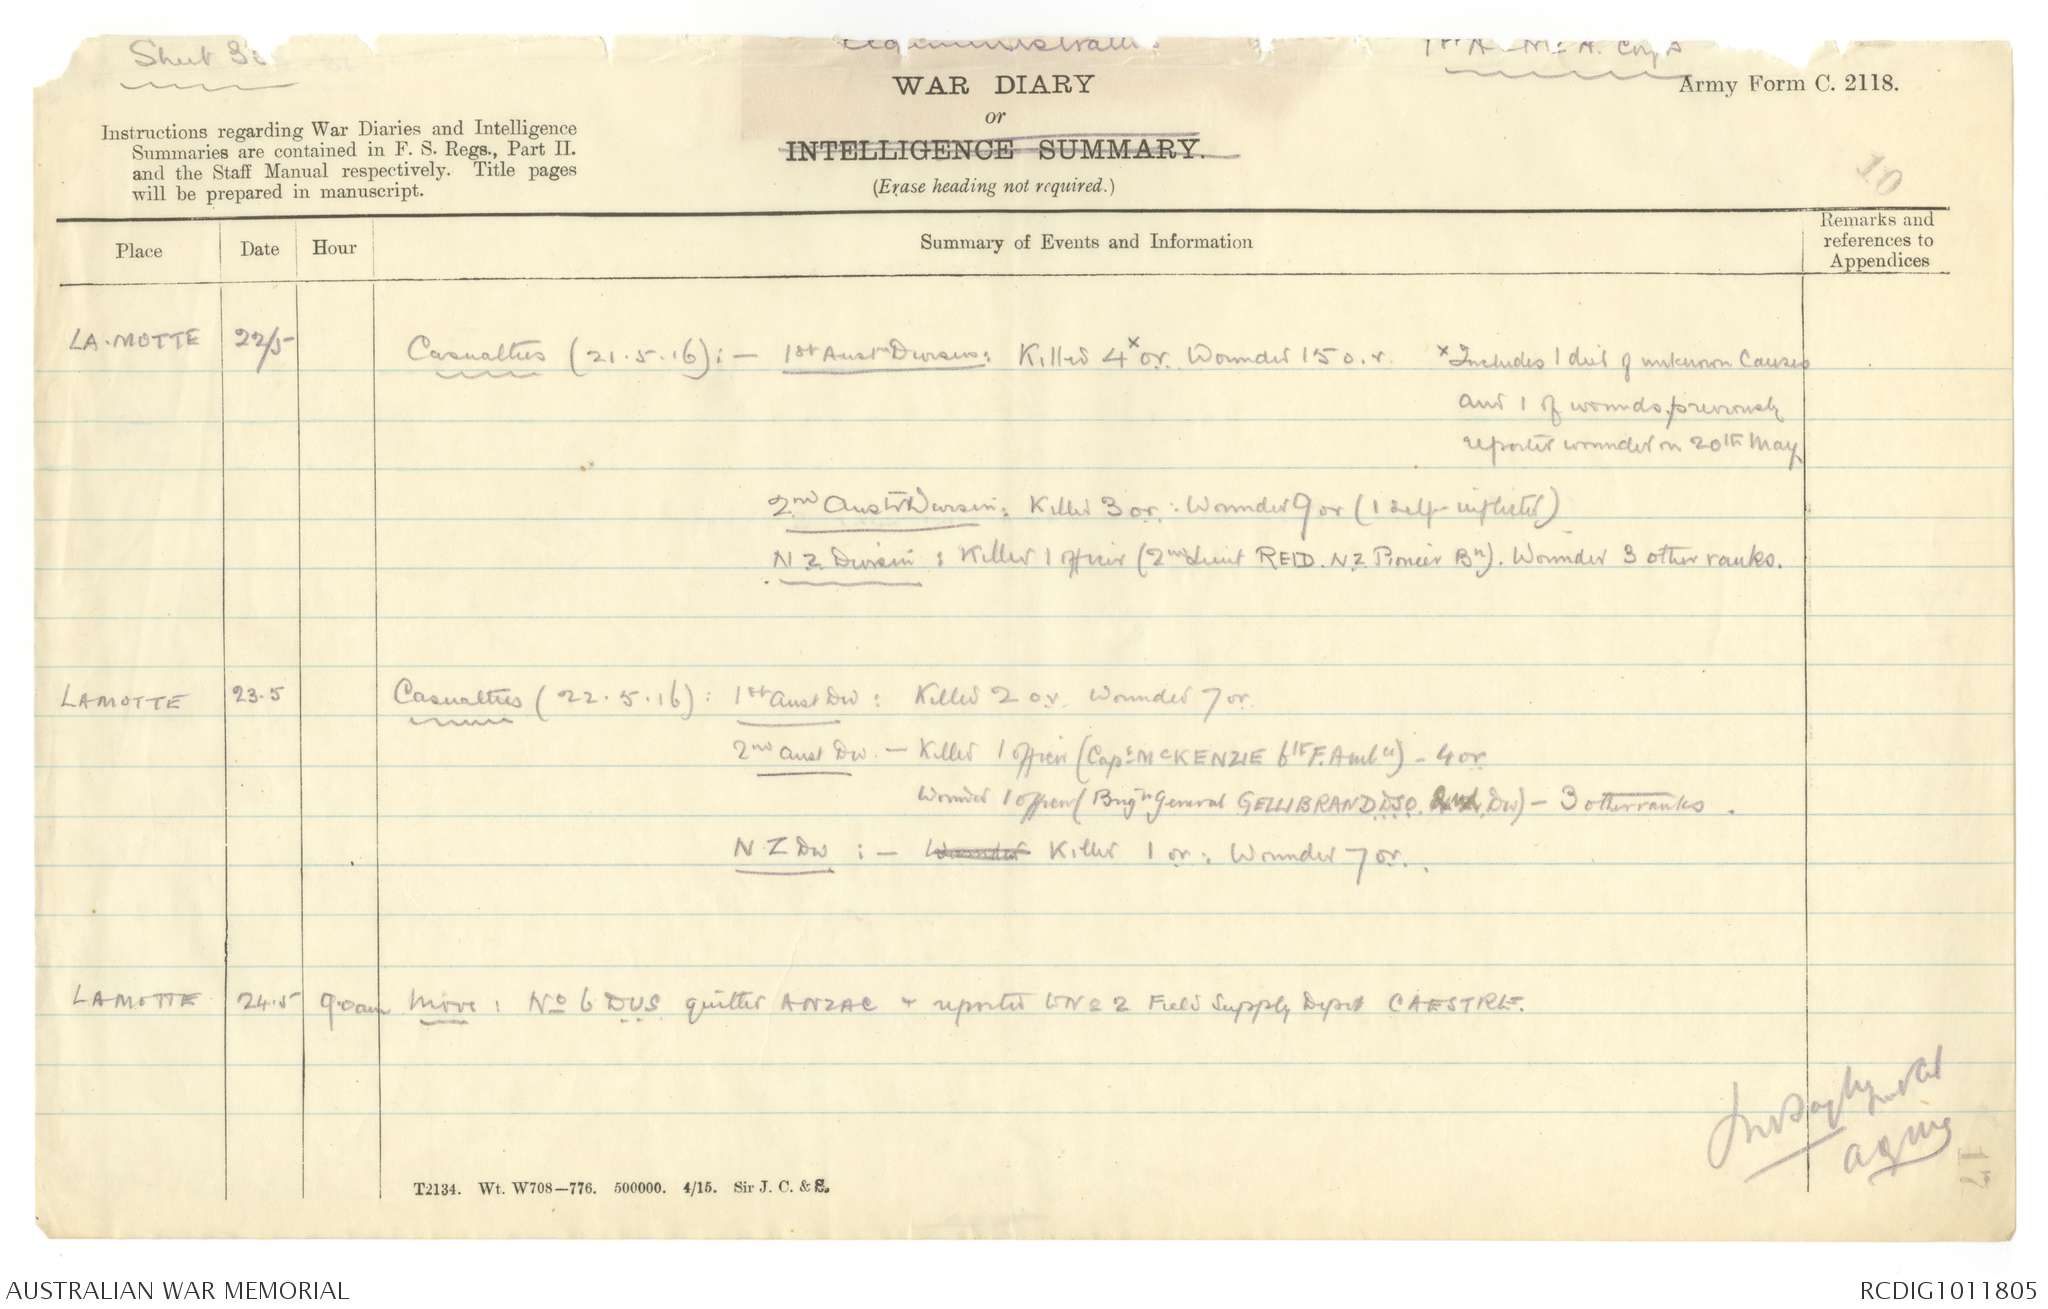 Sheet 3
Administrati
1st A. N. Z. A. Corps
WAR DIARY
or
INTELLIGENCE SUMMARY.
(Erase heading not required.)
Army Form C. 2118.
Instructions regarding War Diaries and Intelligence
Summaries are contained in F. S. Regs., Part II.
and the Staff Manual respectively. Title pages
will be prepared in manuscript.
10
Place
Date
Hour
Summary of Events and Information
Remarks and
references to
Appendices
LA.MOTTE 22/5 Casualties (21.5.16): — 1st Austn Division: Killed 4 x o.r. Wounded 15 o.r. x Includes 1 died of unknown causes
and 1 of wounds, previously
reported wounded on 20th May
2nd Austn Division: Killed 3 o.r. : Wounded 9 o.r (1 self-inflicted)
N Z Division : Killed 1 officer (2nd Lieut REID. N Z Pioneer Bn). Wounded 3 other ranks.
LAMOTTE 23.5 Casualties (22.5.16): 1st Aust Div : Killed 2 o.r. Wounded 7 o.r.
2nd Aust Div. — Killed 1 officer (Capt McKENZIE 6th F. Ambce) - 4 o.r.
Wounded 1 officer (Brign General GELLIBRAND D.S.O. Div) - 3 other ranks.
N Z Div : — Wounded Killed 1 o.r. : Wounded 7 o.r.
LAMOTTE 24.5 9.0am Move : No 6 DUS quitted ANZAC & reported to No 2 Field Supply Depot CAESTRE.
AQMG
17
T2134. Wt. W708—776. 500000. 4/15. Sir J. C. & S.
AUSTRALIAN WAR MEMORIAL
RCDIG1011805